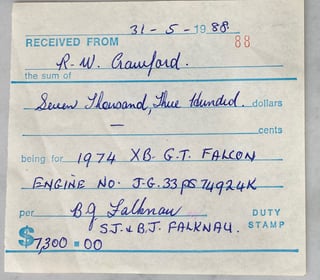 31-5-1988
RECEIVED FROM 88
R.W. Crawford.
the sum of
Seven Thousand, Three Hundred. dollars
— cents
being for 1974 XB. G.T. FALCON
ENGINE NO. J.G.33 74924K
per B J Falknau DUTY
S.J. & B.J. FALKNAU. STAMP
$7,300.00